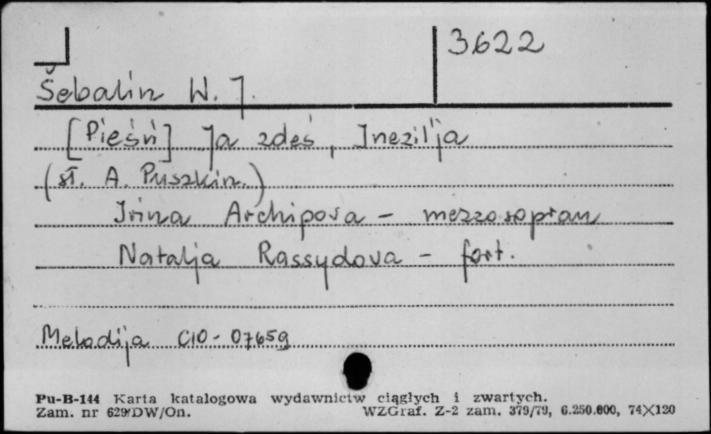 3622
Šebalin W. J.
[Pieśń] Ja zdeś, Inezil'ja
(sł. A. Puszkin.)
Irina Archipova - mezzosopran
Natalja Rassudova - fort.
Melodija C10-07659
Pu-B-144 Karta katalogowa wydawnictw ciągłych i zwartych.
Zam. nr 629/DW/On. WZGraf. Z-2 zam. 379/79, 6.250.000, 74X120